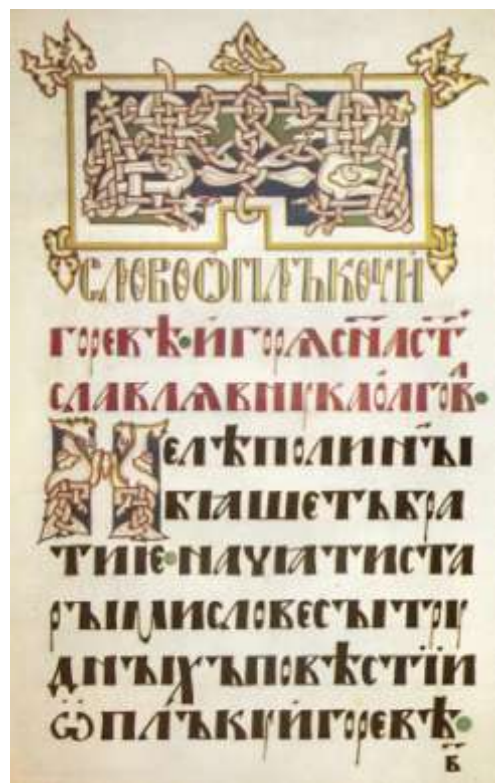 СЛОВОѠПЛЪКОУИ
ГОРЕВѢ·ИГОРѦСН҃АСТ҃
СЛАВЛѦВНУКАОЛГОВА·
НЕЛѢПОЛИНЫ
БꙖШЕТЬБРА
ТИѤ·НАЧꙖТИСТА
РЫМИСЛОВЕСЫТРУ
ДНЫХЪПОВѢСТЇИ
ѠПЛЪКУИГОРЕВѢ·
В҃